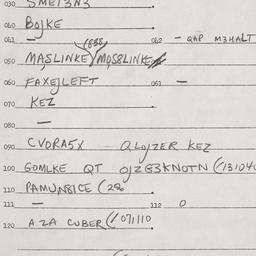 030 SMEI3N3
040 BOJKE
041 — 042 — QAP M3HALT
050 MASLINKE/MOS8LINKE
060 FAXEJLEFT 061 —
070 KEZ
080 —
090 CVORA5X QLOJZER KEZ
100 GOMLKE QT OJZG3KNOTN (/13104
110 PAMUN8ICE (28
111 — 112 O
120 AZA CUBER (/071110